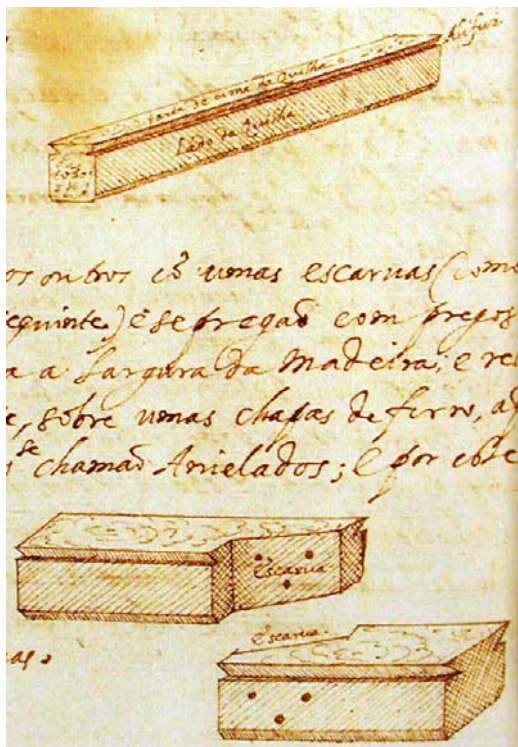 Alefriz
parte de sima da Quilha
Lado da Quilha
os outros cõ umas escaruas (como
seguinte) e se pregaõ com pregos
a a Largura da Madeira; e re
e, sobre umas chapas de ferro, a
se chamaõ Anielados; e por este
Escarua
Escarua
as.